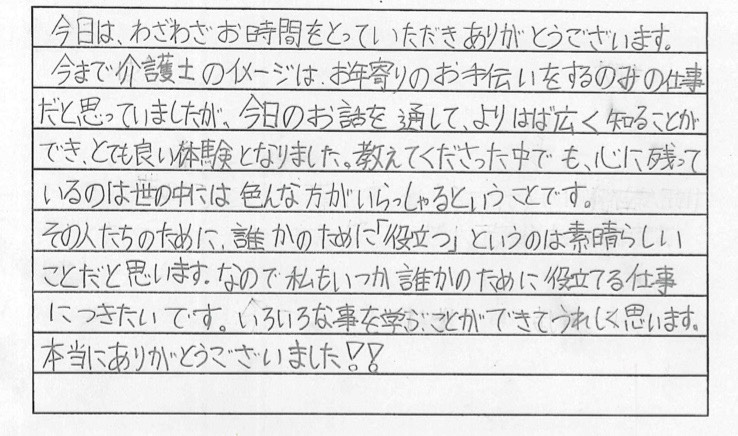 今日は、わざわざお時間をとっていただきありがとうございます。
今まで介護士のイメージは、お年寄りのお手伝いをするのみの仕事
だと思っていましたが、今日のお話を通して、よりはば広く知ることが
でき、とても良い体験となりました。教えてくださった中でも、心に残って
いるのは世の中には色んな方がいらっしゃるということです。
その人たちのために、誰かのために「役立つ」というのは素晴らしい
ことだと思います。なので私もいつか誰かのために役立てる仕事
につきたいです。いろいろな事を学ぶことができてうれしく思います。
本当にありがとうございました!!